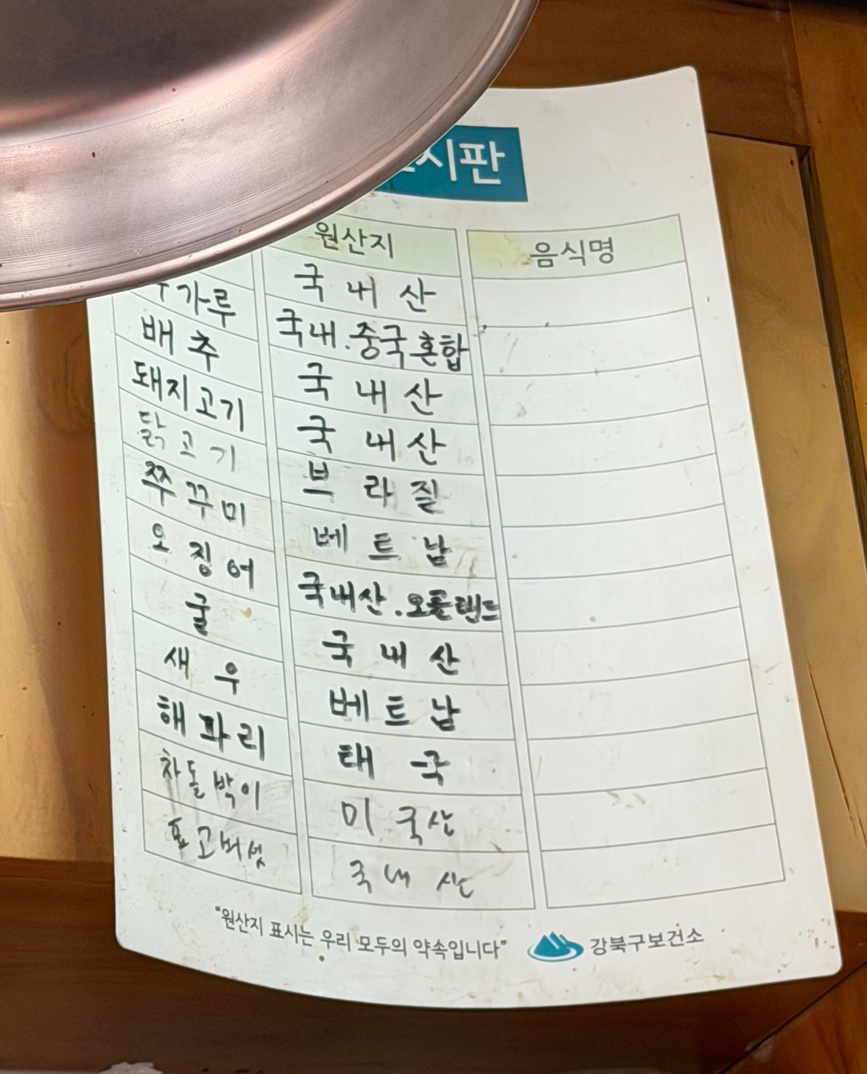 시판
원산지 음식명
국내산
가루 국내.중국혼합
배추 국내산
돼지고기 국내산
닭고기 브라질
쭈꾸미 베트남
오징어 국내산.
굴 국내산
새우 베트남
해파리 태국
차돌박이 미국산
표고버섯 국내산
"원산지 표시는 우리 모두의 약속입니다" 강북구보건소